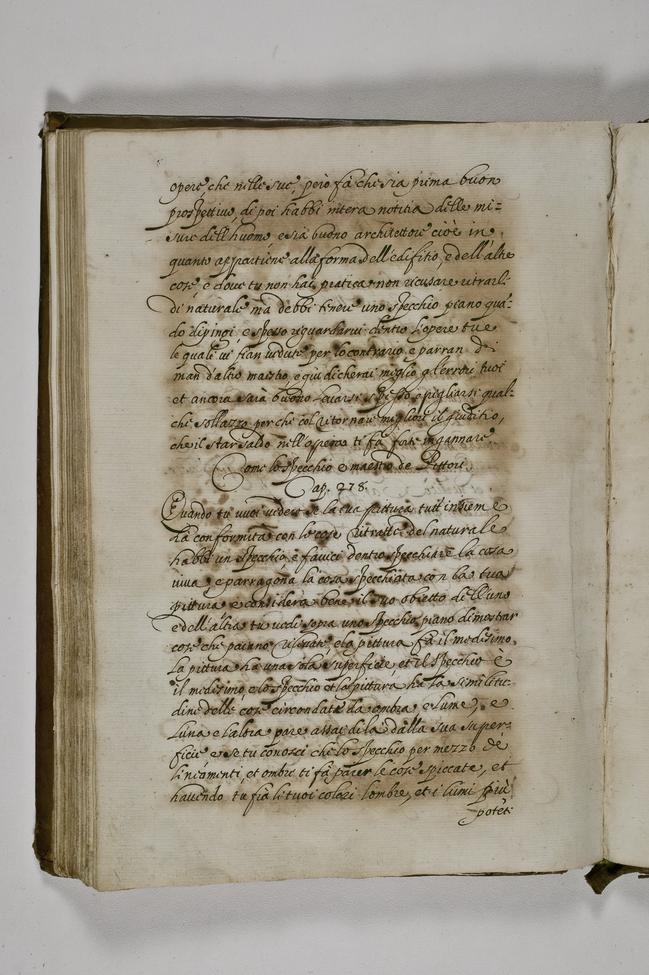 opere, che nelle sue, però fà che sia prima buon
prospettiuo, di poi habbi intera notitia delle mi-
sure dell'huomo, e sia buono architettore cioè in
quanto appartiene alla forma dell'edifitio, e dell'altre
cose, e doue tu non hai pratica non ricusare ritrarle
di naturale ma debbi tenere uno specchio piano quā-
do dipingi e spesso riguardarui dentro l'opere tue
le quale ui fian uedute per lo contrario e parran di
man d'altro maestro, e giudicherai meglio gl'errori tuoi
et ancora sarà buono leuarsi spesso e pigliarsi qual-
che sollazzo perche col ritornare migliore il giuditio,
che il star saldo nell'opera ti fà forte ingannare.
Come lo specchio è maestro de Pittori.
Cap. 278.
Quando tu uuoi uedere se la tua pittura tutt'insieme
hà conformità con le cose ritratte del naturale
habbi un specchio, e fauici dentro specchiare la cosa
uiua e parragona la cosa specchiata con la tua
pittura e considera bene il suo obietto dell'uno
e dell'altra tu uedi sopra uno specchio piano dimostrar
cose che paiano rileuate, e la pittura fà il medesimo.
La pittura hà una sola superficie, et il specchio è
il medesimo, e lo specchio et la pittura hà la similitu-
dine delle cose circondate da ombra e lume, e
l'una e l'altra pare assai di là dalla sua super-
ficie e se tu conosci che lo specchio per mezzo de
lineamenti, et ombre ti fà parer le cose spiccate, et
hauendo tu frà li tuoi colori l'ombre, et i lumi più
potēt: